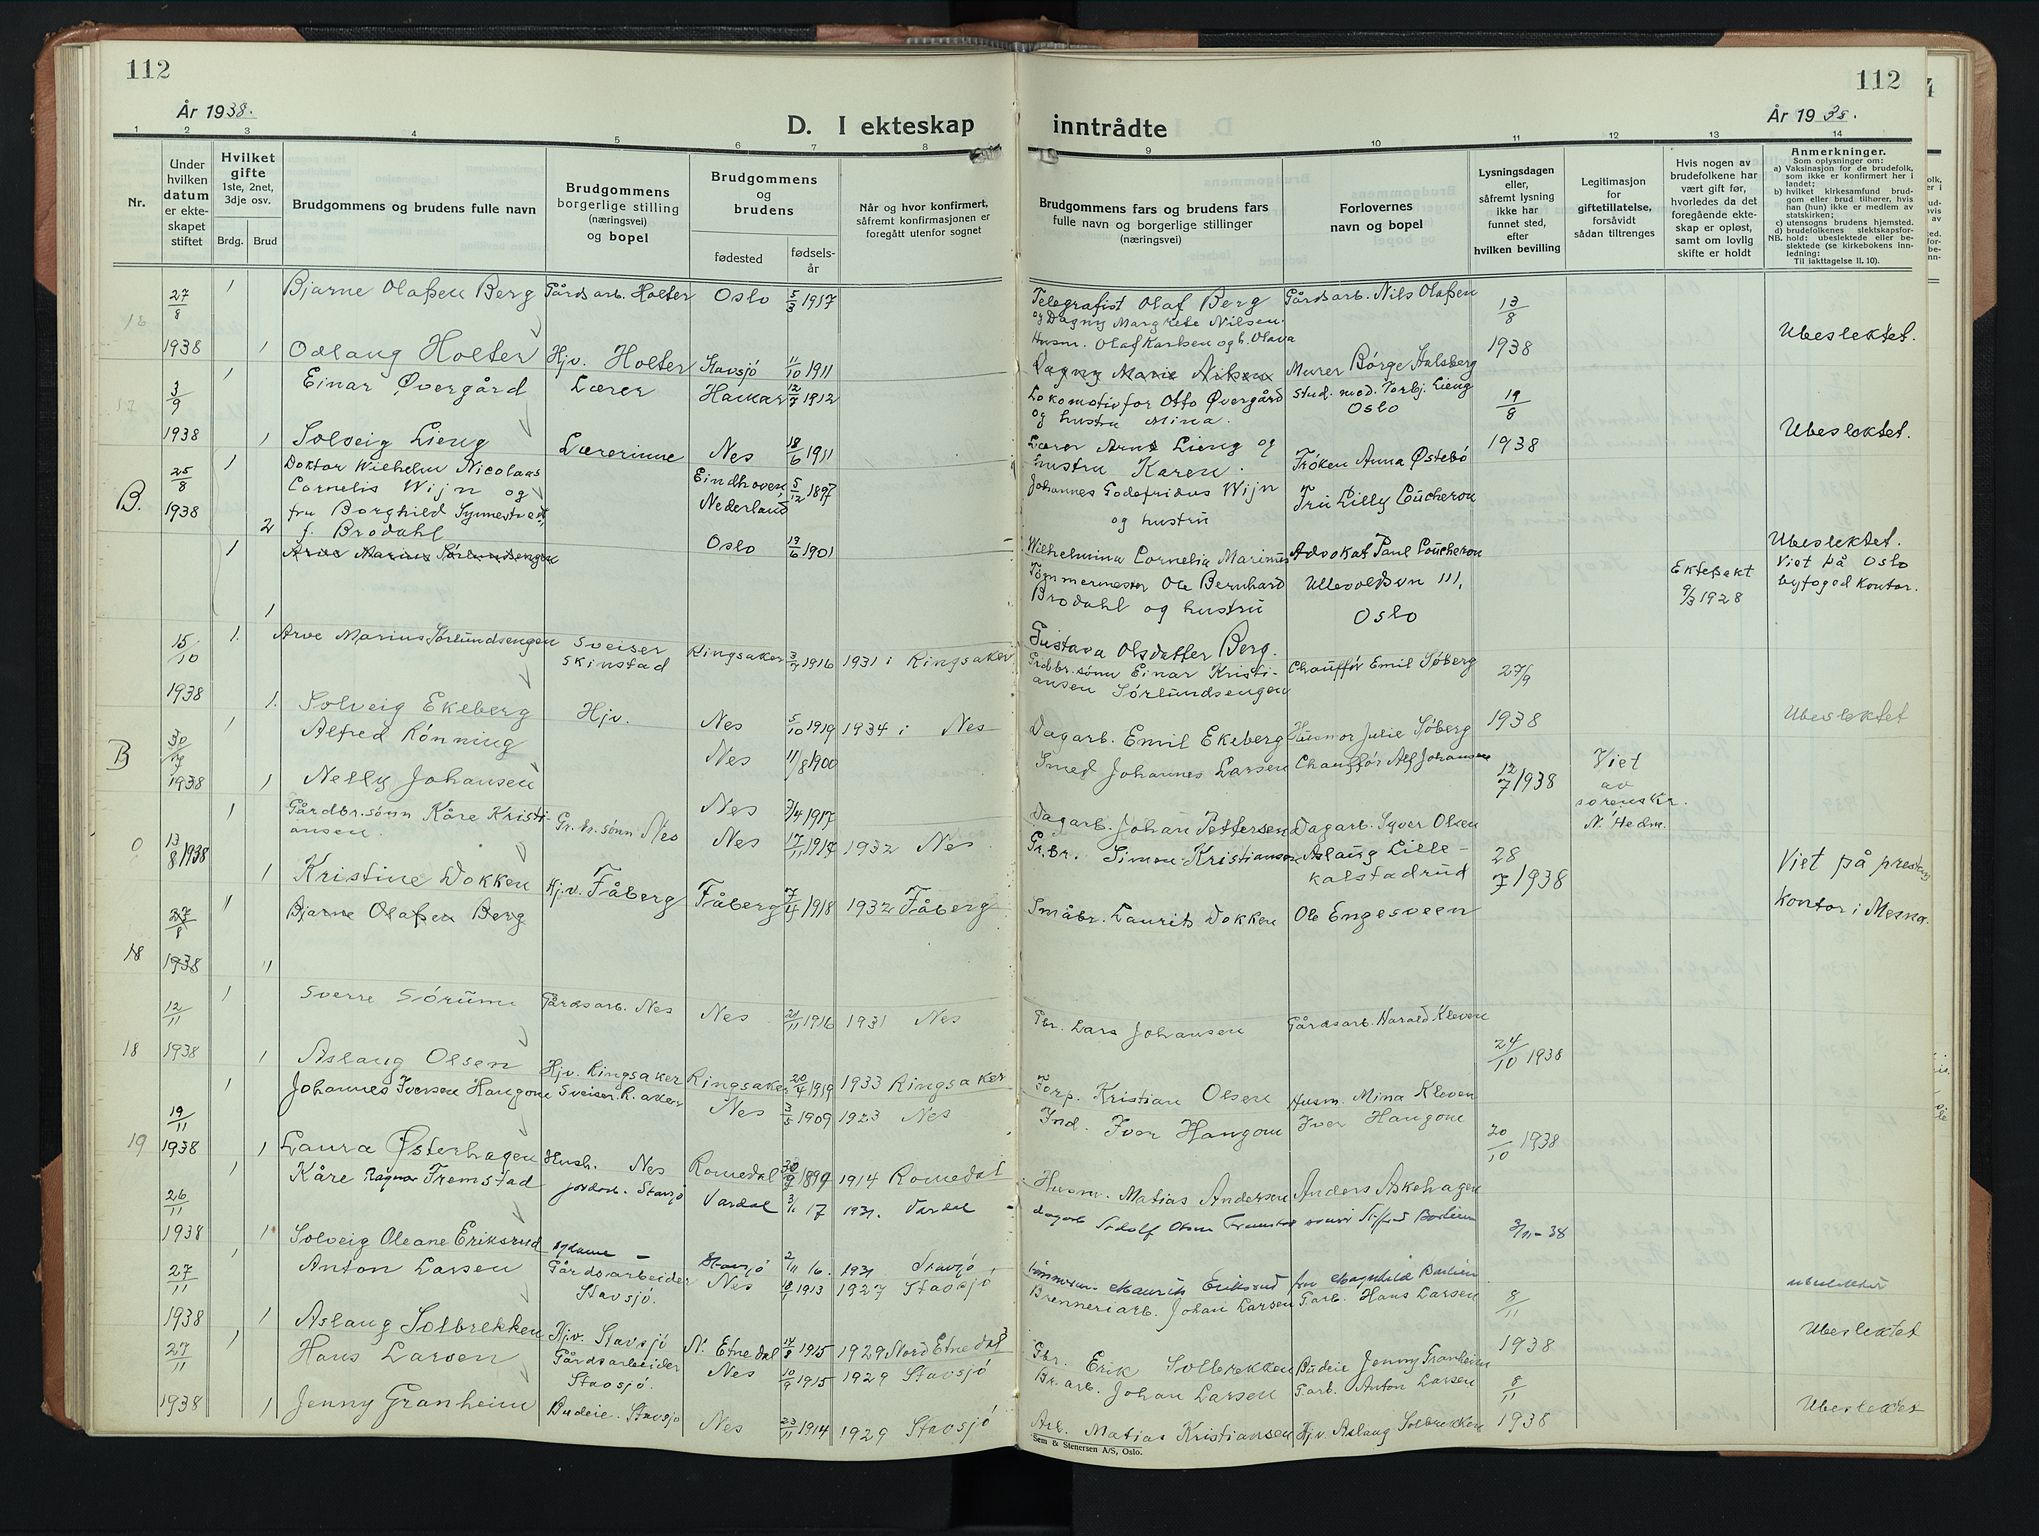 112
112
År 1938.
D. I ekteskap
inntrådte
År 1938.
1 2 3 4 5 6 7 8 9 10 11 12 13 14
Nr.
Under hvilken datum er ekteskapet stiftet
Hvilket gifte
1ste, 2net, 3dje osv.
Brdg. Brud
Brudgommens og brudens fulle navn
Brudgommens borgerlige stilling (næringsvei) og bopel
Brudgommens og brudens
fødested
fødselsår
Når og hvor konfirmert, såfremt konfirmasjonen er foregått utenfor sognet
Brudgommens fars og brudens fars fulle navn og borgerlige stillinger (næringsvei)
Forlovernes navn og bopel
Lysningsdagen eller, såfremt lysning ikke har funnet sted, efter hvilken bevilling
Legitimasjon for giftetillatelse, forsåvidt sådan tiltrenges
Hvis nogen av brudefolkene har vært gift før, hvorledes da det foregående ekteskap er opløst, samt om lovlig skifte er holdt
Anmerkninger.
Som oplysninger om:
a) Vaksinasjon for de brudefolk, som ikke er konfirmert her i landet;
b) hvilket kirkesamfund brudgom eller brud tilhører, hvis han (hun) ikke er medlem av statskirken;
c) utensogns brudens hjemsted.
d) brudefolkenes slektskapsforhold: ubeslektede eller beslektede (se kirkebokens innledning:
Til iakttagelse II. 10).
16 27/8 1 Bjarne Olafsen Berg Gårdsarb. Holter Oslo 5/3 1917 Telegrafist Olaf Berg Gårdsarb. Nils Olafsen 13/8
og Dagny Margrete Nilsen.
Husm. Olaf Karlsen og h. Olava
1938 1 Odlaug Holter Hjv. Holter Stavsjö 11/10 1911 Dagny Marie Nilsen Murer Börge Halsberg 1938 Ubeslektet.
17 3/9 1 Einar Øvergård Lærer Hamar 12/7 1912 Lokomotivfor Otto Øvergård stud. med. Torbj. Lieng 19/8
og hustru Mina. Oslo
1938 1 Solveig Lieng Lærerinne Nes 18/6 1911 Lærer Arne Lieng og 1938 Ubeslektet.
hustru Karen. Fröken Anna Østebö
B. 25/8 1938 1 Doktor Wilhelm Nicolaas Eindhoven, Nederland 5/12 1897 Johannes Godefridus Wijn Fru Lilly Coucheron
Cornelis Wijn og og hustru
2 fru Borghild Synnestvedt,
f. Brodahl
1 Arve Marius Sørlundsengen Oslo 19/6 1901 Wilhelmina Cornelia Marinus Advokat Paul Coucheron Ubeslektet.
Tömmermester Ole Bernhard Ullevoldsvn 111, Ektepakt Viet på Oslo
1 Brodahl og hustru Oslo 9/3 1928 byfoged kontor.
Gustava Olsdatter Berg.
15/10 1. Arve Marius Sørlundsengen Sveiser Skinstad Ringsaker 3/7 1916 1931 i Ringsaker Grdbr.sønn Einar Kristiansen Sörlundsengen Chaufför Emil Söberg 27/9
1938 1. Solveig Ekeberg Hjv. Nes 5/10 1919 1934 i Nes Dagarb. Emil Ekeberg Husmor Julie Söberg 1938 Ubeslektet
B 1938 1 Alfred Rönning Nes 11/8 1900 Smed Johannes Larsen Chaufför Alf Johansen 12/7 1938 Viet av sorenskr. N. Hedm.
1 Nelly Johansen Nes 7/4 1917 Dagarb. Johan Pettersen Dagarb. Syver Olsen
0 13/8 1938 1 Gårdbr.sønn Kåre Kristiansen. Gr.br.sønn Nes Nes 17/11 1917 1932 Nes Gr.br. Simon Kristiansen Aslaug Lillekalstadrud 28/7 1938 Viet på prestens
1 Kristine Dokken Hjv. Fåberg Fåberg 7/4 1918 1932 Fåberg Småbr. Laurits Dokken Ole Engesveen kontor i Mesna.
18 27/8 1 Bjarne Olafsen Berg
1938 "
12/11 1 Sverre Sörum Gårdsarb. Nes Nes 21/11 1916 1931 Nes Gbr. Lars Johansen Gårdsarb. Harald Kleven 24/10 1938
18 1938 1 Aslaug Olsen Hjv. Ringsaker Ringsaker 20/4 1919 1933 Ringsaker Torp. Kristian Olsen Husm. Mina Kleven
19/11 1 Johannes Iversen Haugom Sveiser. R.aker Nes 3/5 1909 1923 Nes Ind. Iver Haugom Iver Haugom 20/10 1938
19 1938 1 Laura Østerhagen Hush. Nes Romedal 30/9 1899 1914 Romedal Husm. Matias Andersen Anders Askehagen
26/11 1 Kåre Ragnar Fremstad jordarb. Stavsjö Vardal 3/11 17 1931. Vardal
1938 1 Solveig Oleane Eriksrud Stavsjö 2/11 16. 1931 Stavsjö Maurits Eriksrud fru Magnhild 3/11-38 ubeslektet
27/11 1 Anton Larsen Gårdsarbeider Stavsjö. Nes 18/1 1913 1927 Stavsjö Brenneriarb. Johan Larsen G.arb. Hans Larsen 8/11
1938 1 Aslaug Solbrekken Hjv. Stavsjö N. Etnedal 14/8 1915 1929 Nord Etnedal Gbr. Erik Solbrekken Budeie Jenny Granheim 1938 Ubeslektet
27/11 1 Hans Larsen Gårdsarbeider Stavsjö. Nes 10/9 1915 1929 Stavsjö Br. arb. Johan Larsen G.arb. Anton Larsen 8/11
1938 1 Jenny Granheim Budeie. Stavsjö Nes 23/11 1914 1929 Stavsjö Arb. Matias Kristiansen Hjv. Aslaug Solbrekken 1938 Ubeslektet
Sem & Stenersen A/S, Oslo.